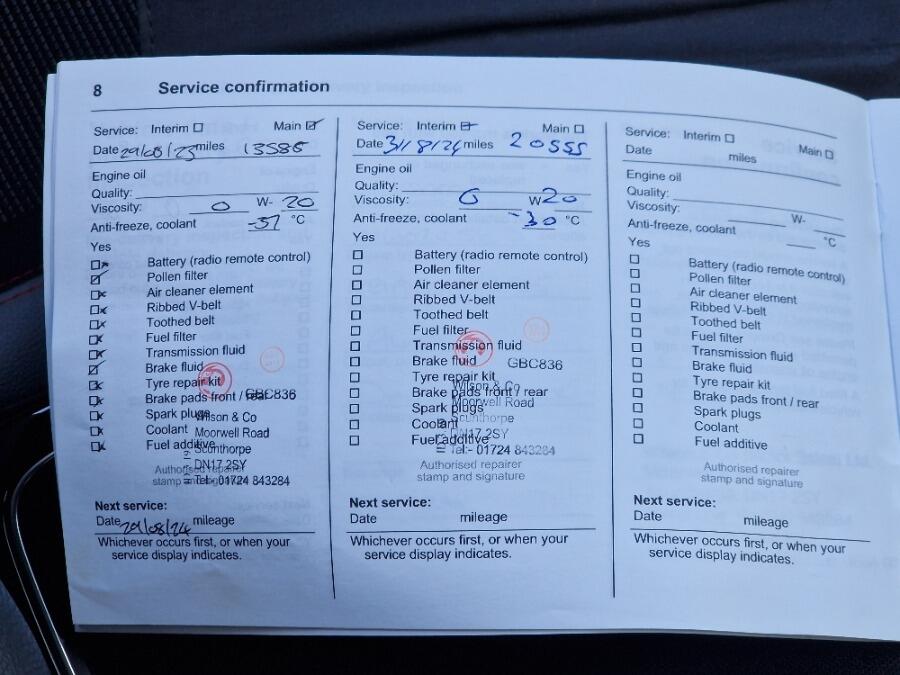 8 Service confirmation
Service: Interim ☐ Main ☑
Date 29/08/23 miles 13586
Engine oil
Quality:
Viscosity: 0 W- 20
Anti-freeze, coolant -37 °C
Yes
Battery (radio remote control)
Pollen filter
Air cleaner element
Ribbed V-belt
Toothed belt
Fuel filter
Transmission fluid
Brake fluid
Tyre repair kit
Brake pads front / rear GBC836
Spark plugs
Wilson & Co
Coolant Moorwell Road
Fuel additive Scunthorpe
DN17 2SY
Authorised repairer
stamp and signature
Tel:- 01724 843284
Next service:
Date 29/08/24 mileage
Whichever occurs first, or when your
service display indicates.
Service: Interim ☑ Main ☐
Date 31/8/24 miles 20555
Engine oil
Quality:
Viscosity: 0 W 20
Anti-freeze, coolant -30 °C
Yes
Battery (radio remote control)
Pollen filter
Air cleaner element
Ribbed V-belt
Toothed belt
Fuel filter
Transmission fluid
Brake fluid GBC836
Tyre repair kit
Wilson & Co
Brake pads front / rear
Moorwell Road
Spark plugs
Scunthorpe
Coolant
DN17 2SY
Fuel additive
Tel:- 01724 843284
Authorised repairer
stamp and signature
Next service:
Date mileage
Whichever occurs first, or when your
service display indicates.
Service: Interim ☐ Main ☐
Date miles
Engine oil
Quality:
Viscosity: W-
Anti-freeze, coolant °C
Yes
Battery (radio remote control)
Pollen filter
Air cleaner element
Ribbed V-belt
Toothed belt
Fuel filter
Transmission fluid
Brake fluid
Tyre repair kit
Brake pads front / rear
Spark plugs
Coolant
Fuel additive
Authorised repairer
stamp and signature
Next service:
Date mileage
Whichever occurs first, or when your
service display indicates.